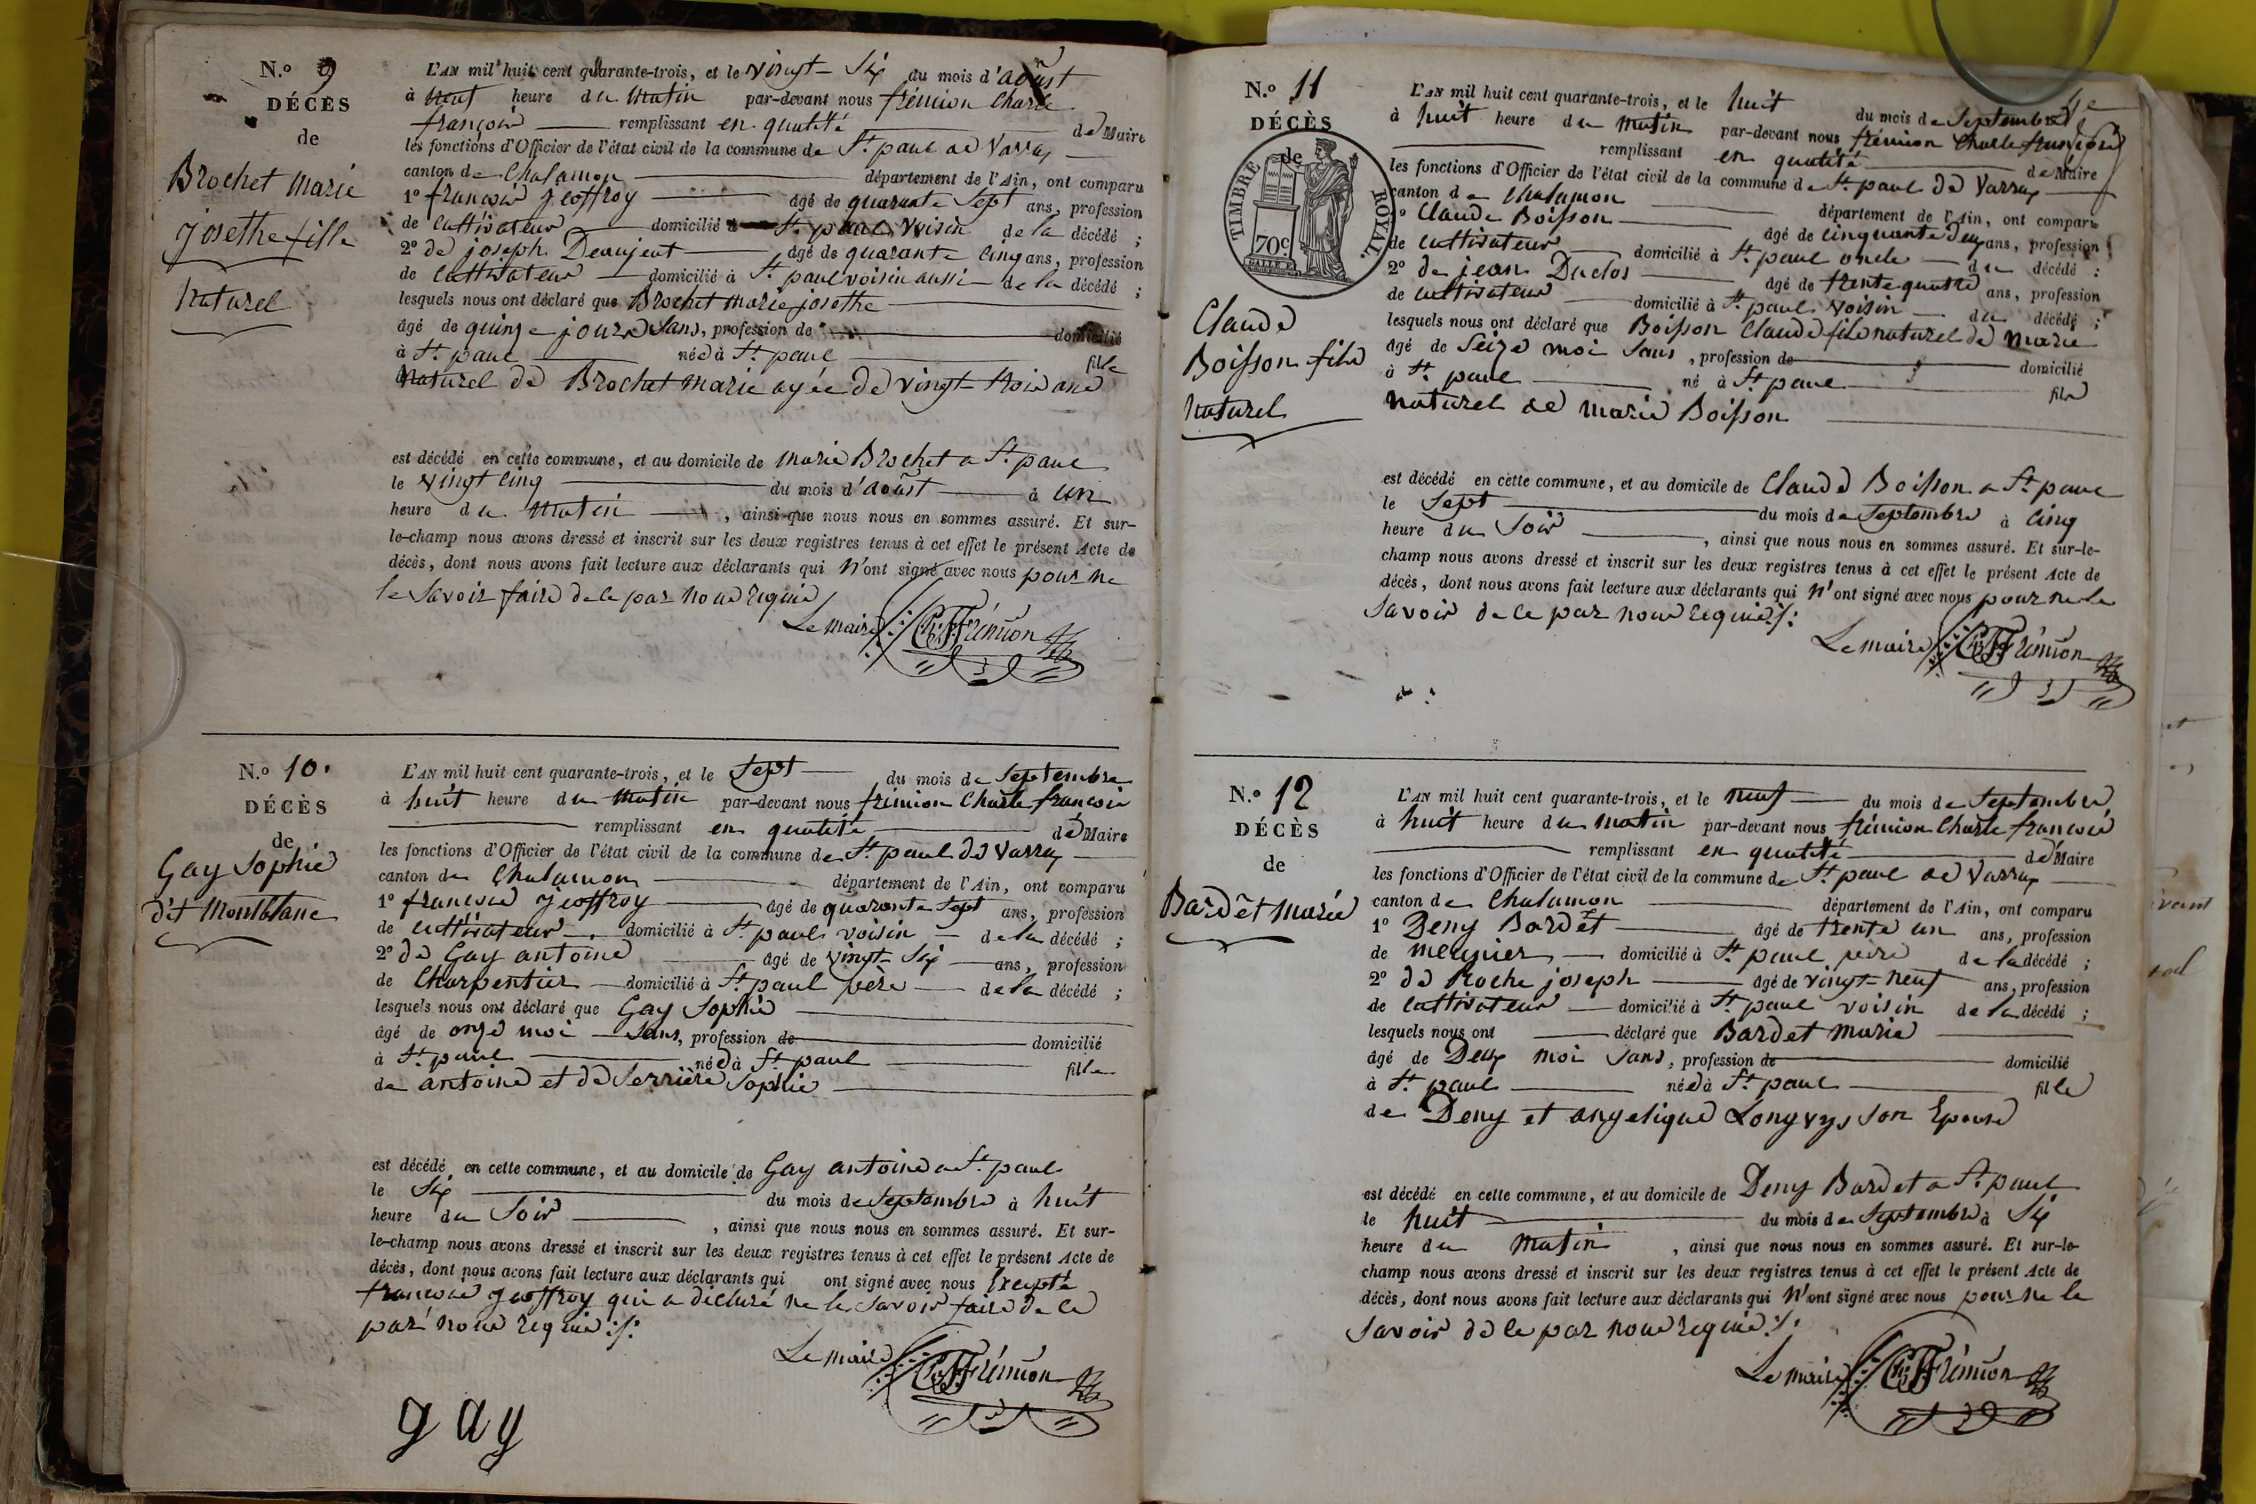 N.o 9
DÉCÈS
de
Brochet marie
josethe fille
Naturel
L'AN mil huit cent quarante-trois, et le vingt-Six du mois d'août
à neuf heure du matin par-devant nous frémion Charle
françois remplissant en qualité de Maire
les fonctions d'Officier de l'état civil de la commune de St. paul de Varax
canton de Chalamon département de l'Ain, ont comparu
1o françois jeoffroy âgé de quarante Sept ans, profession
de Cultivateur domicilié à St. paul Voisin de la décédé ;
2o de joseph Deaujeut âgé de quarante Cinq ans, profession
de Cultivateur domicilié à St. paul voisin aussi de la décédé ;
lesquels nous ont déclaré que Brochet marie josethe
âgé de quinze jours Sans, profession de domicilié
à St. paul née à St. paul fille
Naturel de Brochet marie agée de vingt-trois ans
est décédé en cette commune, et au domicile de marie Brochet a St. paul
le vingt Cinq du mois d'août à un
heure du matin, ainsi que nous nous en sommes assuré. Et sur-
le-champ nous avons dressé et inscrit sur les deux registres tenus à cet effet le présent Acte de
décès, dont nous avons fait lecture aux déclarants qui n'ont signé avec nous pour ne
le Savoir faire de ce par nous requis
Le maire Ch. F. Frémion
N.o 10.
DÉCÈS
de
Gay Sophie
dit Montblanc
L'AN mil huit cent quarante-trois, et le Sept du mois de Septembre
à huit heure du matin par-devant nous frémion Charle françois
remplissant en qualité de Maire
les fonctions d'Officier de l'état civil de la commune de St. paul de Varax
canton de Chalamon département de l'Ain, ont comparu
1o françois jeoffroy âgé de quarante Sept ans, profession
de cultivateur domicilié à St. paul voisin de la décédé ;
2o de Gay antoine âgé de vingt-Six ans, profession
de Charpentier domicilié à St. paul père de la décédé ;
lesquels nous ont déclaré que Gay Sophie
âgé de onze moi Sans, profession de domicilié
à St. paul née à St. paul fille
de antoine et de Serrière Sophie
est décédé en cette commune, et au domicile de Gay antoine a St. paul
le Six du mois de Septembre à huit
heure du Soir, ainsi que nous nous en sommes assuré. Et sur-
le-champ nous avons dressé et inscrit sur les deux registres tenus à cet effet le présent Acte de
décès, dont nous avons fait lecture aux déclarants qui ont signé avec nous Excepté
françois jeoffroy qui a déclaré ne le Savoir faire de ce
par nous requis :/:
Le maire Ch. F. Frémion
gay
N.o 11
DÉCÈS
de
TIMBRE ROYAL
70c
Claude
Boisson fils
Naturel
L'AN mil huit cent quarante-trois, et le huit du mois de Septembre
à huit heure du matin par-devant nous frémion Charle françois
remplissant en qualité de Maire
les fonctions d'Officier de l'état civil de la commune de St. paul de Varax
canton de Chalamon département de l'Ain, ont comparu
1o Claude Boisson âgé de Cinquante Deux ans, profession
de Cultivateur domicilié à St. paul oncle du décédé ;
2o de jean Duclos âgé de trente quatre ans, profession
de cultivateur domicilié à St. paul Voisin du décédé ;
lesquels nous ont déclaré que Boisson Claude fils naturel de marie
âgé de Seize moi Sans, profession de domicilié
à St. paul né à St. paul fils
Naturel de marie Boisson
est décédé en cette commune, et au domicile de Claude Boisson a St. paul
le Sept du mois de Septembre à Cinq
heure du Soir, ainsi que nous nous en sommes assuré. Et sur-le-
champ nous avons dressé et inscrit sur les deux registres tenus à cet effet le présent Acte de
décès, dont nous avons fait lecture aux déclarants qui n'ont signé avec nous pour ne le
Savoir de ce par nous requis /:
Le maire Ch. F. Frémion
N.o 12
DÉCÈS
de
Bardet marie
L'AN mil huit cent quarante-trois, et le neuf du mois de Septembre
à huit heure du matin par-devant nous frémion Charle françois
remplissant en qualité de Maire
les fonctions d'Officier de l'état civil de la commune de St. paul de Varax
canton de Chalamon département de l'Ain, ont comparu
1o Deny Bardet âgé de trente un ans, profession
de meunier domicilié à St. paul père de la décédé ;
2o de Roche joseph âgé de vingt-neuf ans, profession
de Cultivateur domicilié à St. paul voisin de la décédé ;
lesquels nous ont déclaré que Bardet marie
âgé de Deux moi Sans, profession de domicilié
à St. paul née à St. paul fille
de Deny et angelique Longvys Son Epouse
est décédé en cette commune, et au domicile de Deny Bardet a St. paul
le huit du mois de Septembre à Six
heure du matin, ainsi que nous nous en sommes assuré. Et sur-le-
champ nous avons dressé et inscrit sur les deux registres tenus à cet effet le présent Acte de
décès, dont nous avons fait lecture aux déclarants qui n'ont signé avec nous pour ne le
Savoir de ce par nous requis :/:
Le maire Ch. F. Frémion